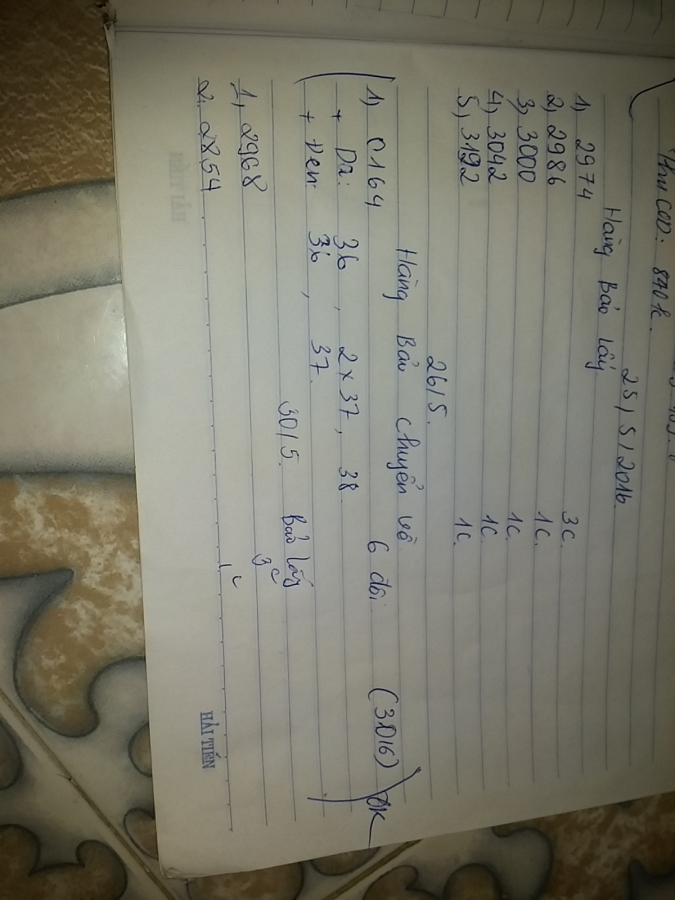 Thu COD: 840k.
25/5/2016
Hàng Bảo lấy
1, 2974 3c.
2, 2986 1c.
3, 3000 1c.
4, 3042 1c
5, 3192 1c.
26/5.
Hàng Bảo chuyển về
1, 0164 6 đôi (3016) OK
+ Da: 36, 2x37, 38.
+ Đen: 36, 37.
30/5. Bảo lấy
1, 2968 3c
2, 2854 1c
HẢI TIẾN